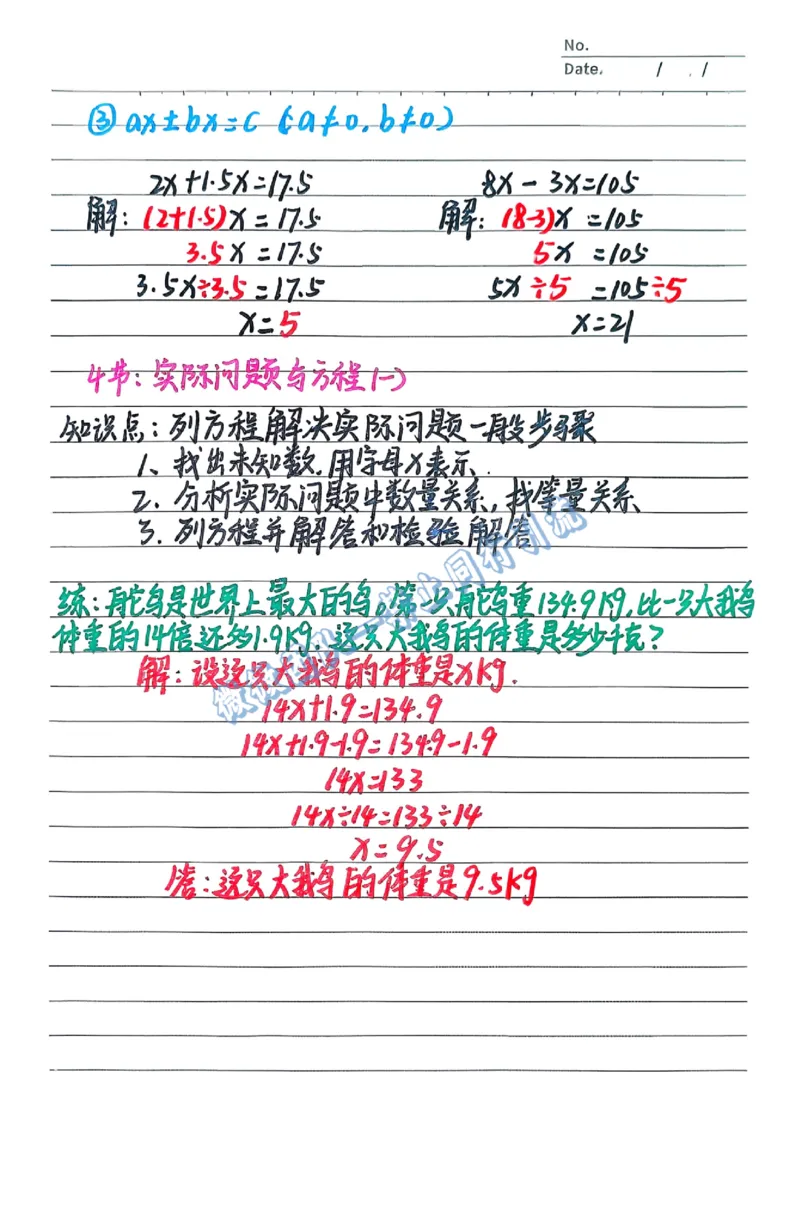 No.
Date. / . /
③ ax±bx=c (a≠0,b≠0)
2x+1.5x=17.5
解:(2+1.5)x=17.5
3.5x=17.5
3.5x÷3.5=17.5
x=5
8x-3x=105
解:(8-3)x=105
5x=105
5x÷5=105÷5
x=21
4节:实际问题与方程(一)
知识点:列方程解决实际问题一般步骤
1、找出未知数,用字母x表示.
2、分析实际问题中数量关系,找等量关系、
3、列方程并解答和检验解答
练:鸵鸟是世界上最大的鸟。第一只鸵鸟重134.9kg,比一只大我鸟
体重的14倍还多1.9kg.这只大我鸟的体重是多少千克?
解:设这只大我鸟的体重是xkg.
14x+1.9=134.9
14x+1.9-1.9=134.9-1.9
14x=133
14x÷14=133÷14
x=9.5
答:这只大我鸟的体重是9.5kg